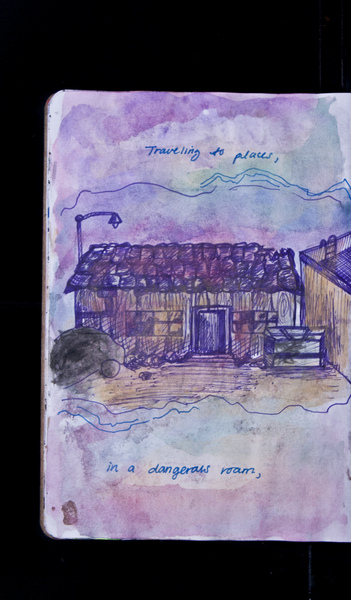 Traveling to places,
in a dangeraus roam,